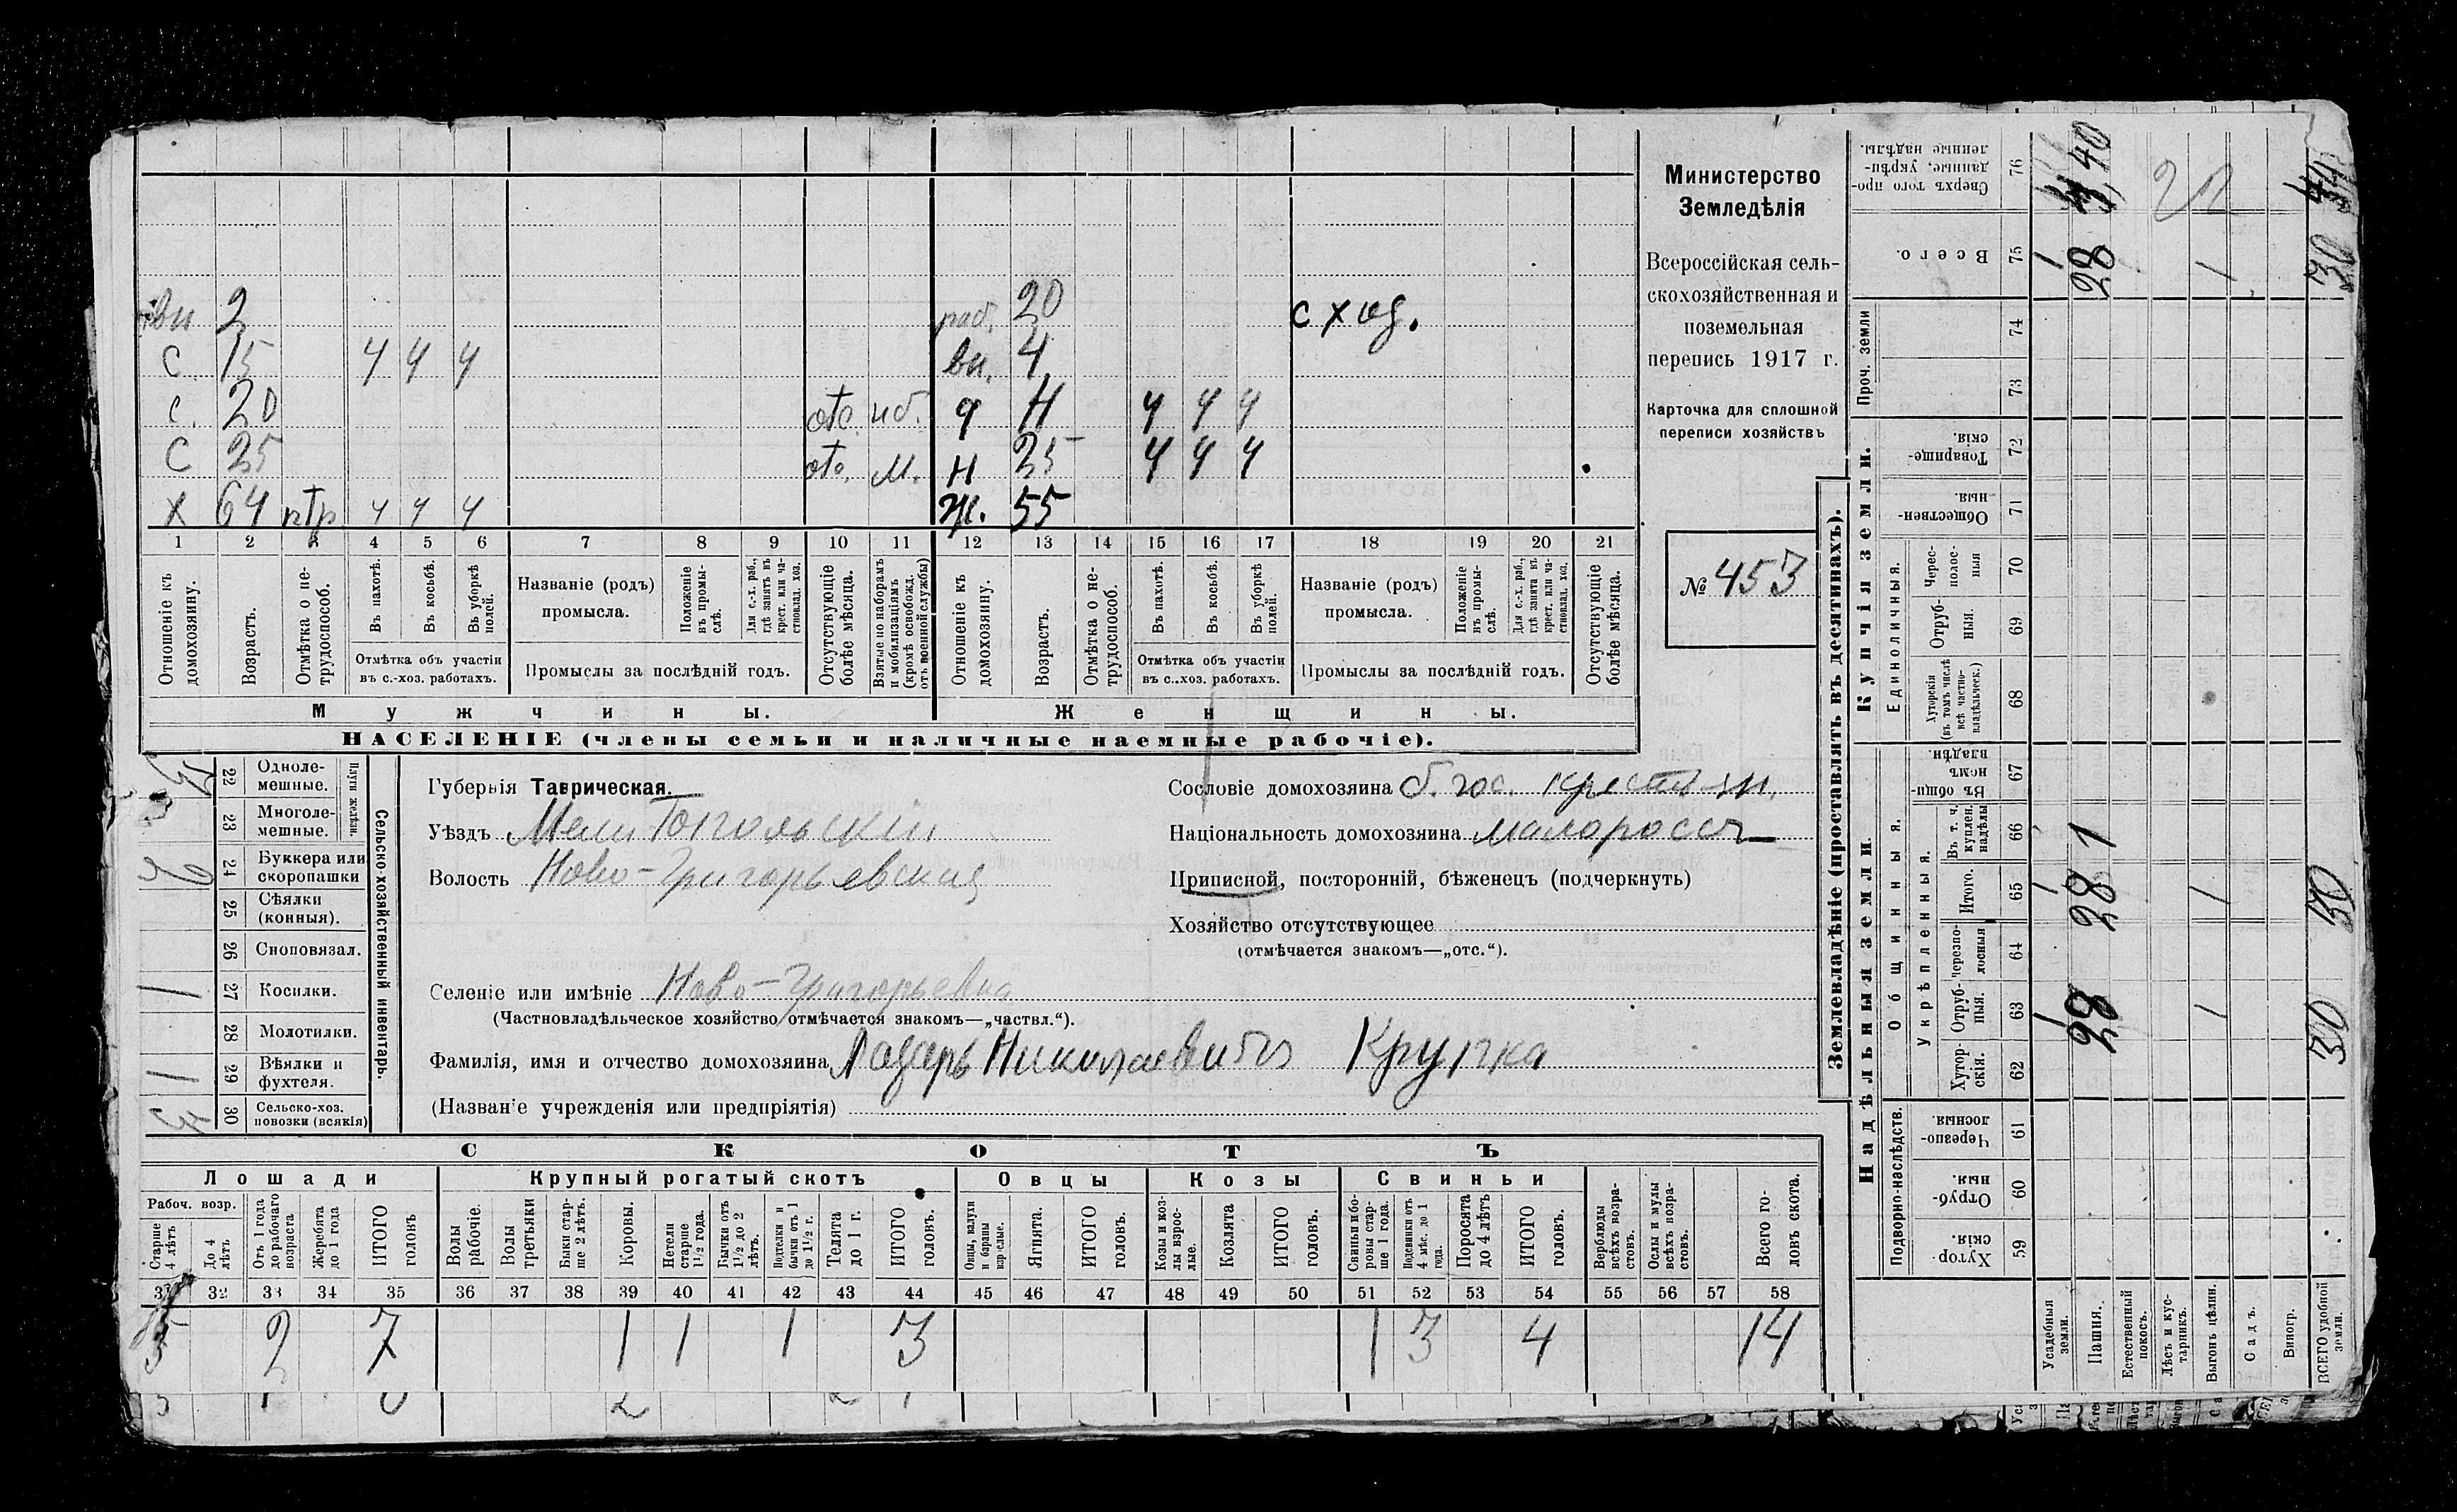 вн 2 раб. 20 с х од.
С 15 ч ч ч вн. 4
С. 20 отс. нб. ч Н ч ч ч
С 25 отс. м. н 25 ч ч ч
Х 64 ч ч ч Ж. 55
1 2 3 4 5 6 7 8 9 10 11 12 13 14 15 16 17 18 19 20 21
Отношеніе къ домохозяину.
Возрастъ.
Отмѣтка о нетрудоспособ.
Въ пахотѣ.
Въ косьбѣ.
Въ уборкѣ полей.
Отмѣтка объ участіи въ с.-хоз. работахъ.
Названіе (родъ) промысла.
Положеніе въ промыслѣ.
Для с.-х. раб., гдѣ занятъ въ крест. или частновлад. хоз.
Промыслы за послѣдній годъ.
Отсутствующіе болѣе мѣсяца.
Взятые по наборамъ и мобилизаціямъ (кромѣ освобожд. отъ военной службы)
Отношеніе къ домохозяину.
Возрастъ.
Отмѣтка о нетрудоспособ.
Въ пахотѣ.
Въ косьбѣ.
Въ уборкѣ полей.
Отмѣтка объ участіи въ с.-хоз. работахъ.
Названіе (родъ) промысла.
Положеніе въ промыслѣ.
Для с.-х. раб., гдѣ занятъ въ крест. или частновлад. хоз.
Промыслы за послѣдній годъ.
Отсутствующіе болѣе мѣсяца.
Мужчины. Женщины.
НАСЕЛЕНІЕ (члены семьи и наличные наемные рабочіе).
Министерство
Земледѣлія
Всероссійская сель-
скохозяйственная и
поземельная
перепись 1917 г.
Карточка для сплошной
переписи хозяйствъ
№ 453
Сельско-хозяйственный инвентарь.
Плуги желѣзн.
22 Однолемешные.
23 Многолемешные.
24 Буккера или скоропашки
25 Сѣялки (конныя).
26 Сноповязал.
27 Косилки. 1
28 Молотилки.
29 Вѣялки и фухтеля. 1
30 Сельско-хоз. повозки (всякія) 3
Губернія Таврическая.
Уѣздъ Мелитопольскій
Волость Ново-Григорьевская
Селеніе или имѣніе Ново-Григорьевка
(Частновладѣльческое хозяйство отмѣчается знакомъ—„частвл.“).
Фамилія, имя и отчество домохозяина Лазарь Николаевичъ Крупка
(Названіе учрежденія или предпріятія)
Сословіе домохозяина б. гос. крестьян.
Національность домохозяина малороссъ
Приписной, посторонній, бѣженецъ (подчеркнуть)
Хозяйство отсутствующее
(отмѣчается знакомъ—„отс.“).
СКОТЪ
Лошади Крупный рогатый скотъ Овцы Козы Свиньи
Рабоч. возр.
Старше 4 лѣтъ
До 4 лѣтъ
Отъ 1 года до рабочаго возраста
Жеребята до 1 года
ИТОГО головъ
Волы рабочіе.
Волы третьяки
Быки старше 2 лѣтъ.
Коровы.
Нетели старше 1½ года.
Бычки отъ 1½ до 2 лѣтъ.
Подтелки и бычки отъ 1 до 1½ г.
Телята до 1 г.
ИТОГО головъ.
Овцы, валухи и бараны взрослые.
Ягнята.
ИТОГО головъ.
Козы и козлы взрослые.
Козлята
ИТОГО головъ.
Свиньи и боровы старше 1 года.
Подсвинки отъ 4 мѣс. до 1 года.
Поросята до 4 лѣтъ
ИТОГО головъ.
Верблюды всѣхъ возрастовъ.
Ослы и мулы всѣхъ возрастовъ.
Всего головъ скота.
31 32 33 34 35 36 37 38 39 40 41 42 43 44 45 46 47 48 49 50 51 52 53 54 55 56 57 58
5 2 7 1 1 1 3 1 3 4 14
Землевладѣніе (проставлять въ десятинахъ).
Купчія земли.
Надѣльныя земли.
Сверхъ того проданные, укрѣпленные надѣлы. 76
Всего. 75 28 1 30
Проч. земли 74 73
Товарищескія. 72
Общественныя. 71
Единоличныя.
Чересполосныя 70
Отрубныя. 69
Хуторскія (въ томъ числѣ всѣ частновладѣльческ.) 68
Общинныя.
Въ общинномъ владѣн. 67
Укрѣпленныя.
Въ т. ч. куплен. надѣлы 66
Итого. 65 1 28 1 30
Черезполосныя 64
Отрубныя. 63 1 28 1 30
Хуторскія. 62
Подворно-наслѣдств.
Черезполосныя 61
Отрубныя. 60
Хуторскія. 59
Усадебныя земли.
Пашня.
Естественный покосъ.
Лѣсъ и кустарникъ.
Выгонъ цѣлин.
Садъ.
Виногр.
ВСЕГО удобной земли.